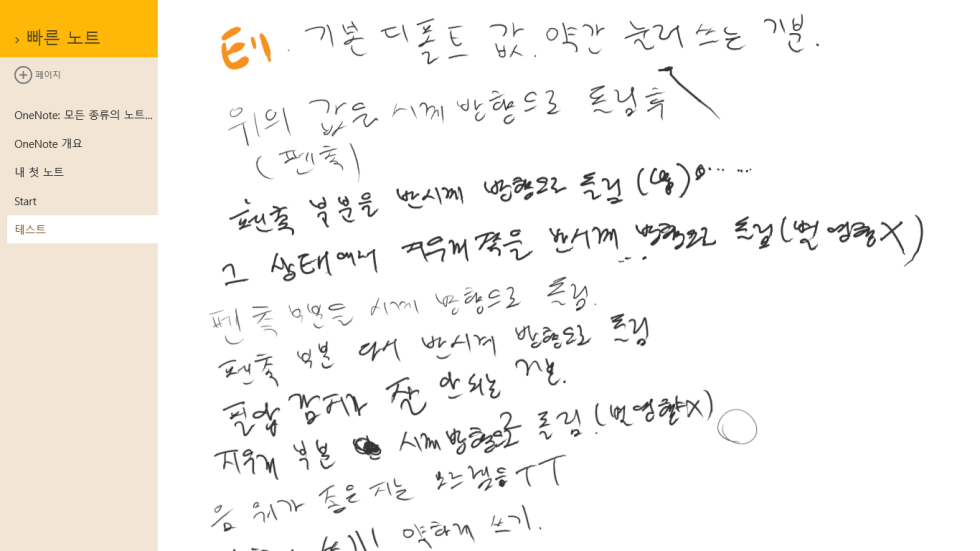 › 빠른 노트
+ 페이지
OneNote: 모든 종류의 노트...
OneNote 개요
내 첫 노트
Start
테스트
테. 기본 디폴트 값. 약간 눌러 쓰는 기분.
위의 값을 시계 방향으로 돌림 후
(펜촉)
펜촉 부분을 반시계 방향으로 돌림
그 상태에서 지우개 쪽을 반시계 방향으로 돌림 (별 영향 X)
펜촉 부분을 시계 방향으로 돌림.
펜촉 부분 다시 반시계 방향으로 돌림
필압 감지가 잘 안되는 기분.
지우개 부분 시계 방향으로 돌림. (별 영향 X)
음 뭐가 좋은지는 모르겠음 ㅜㅜ
약하게 쓰기.